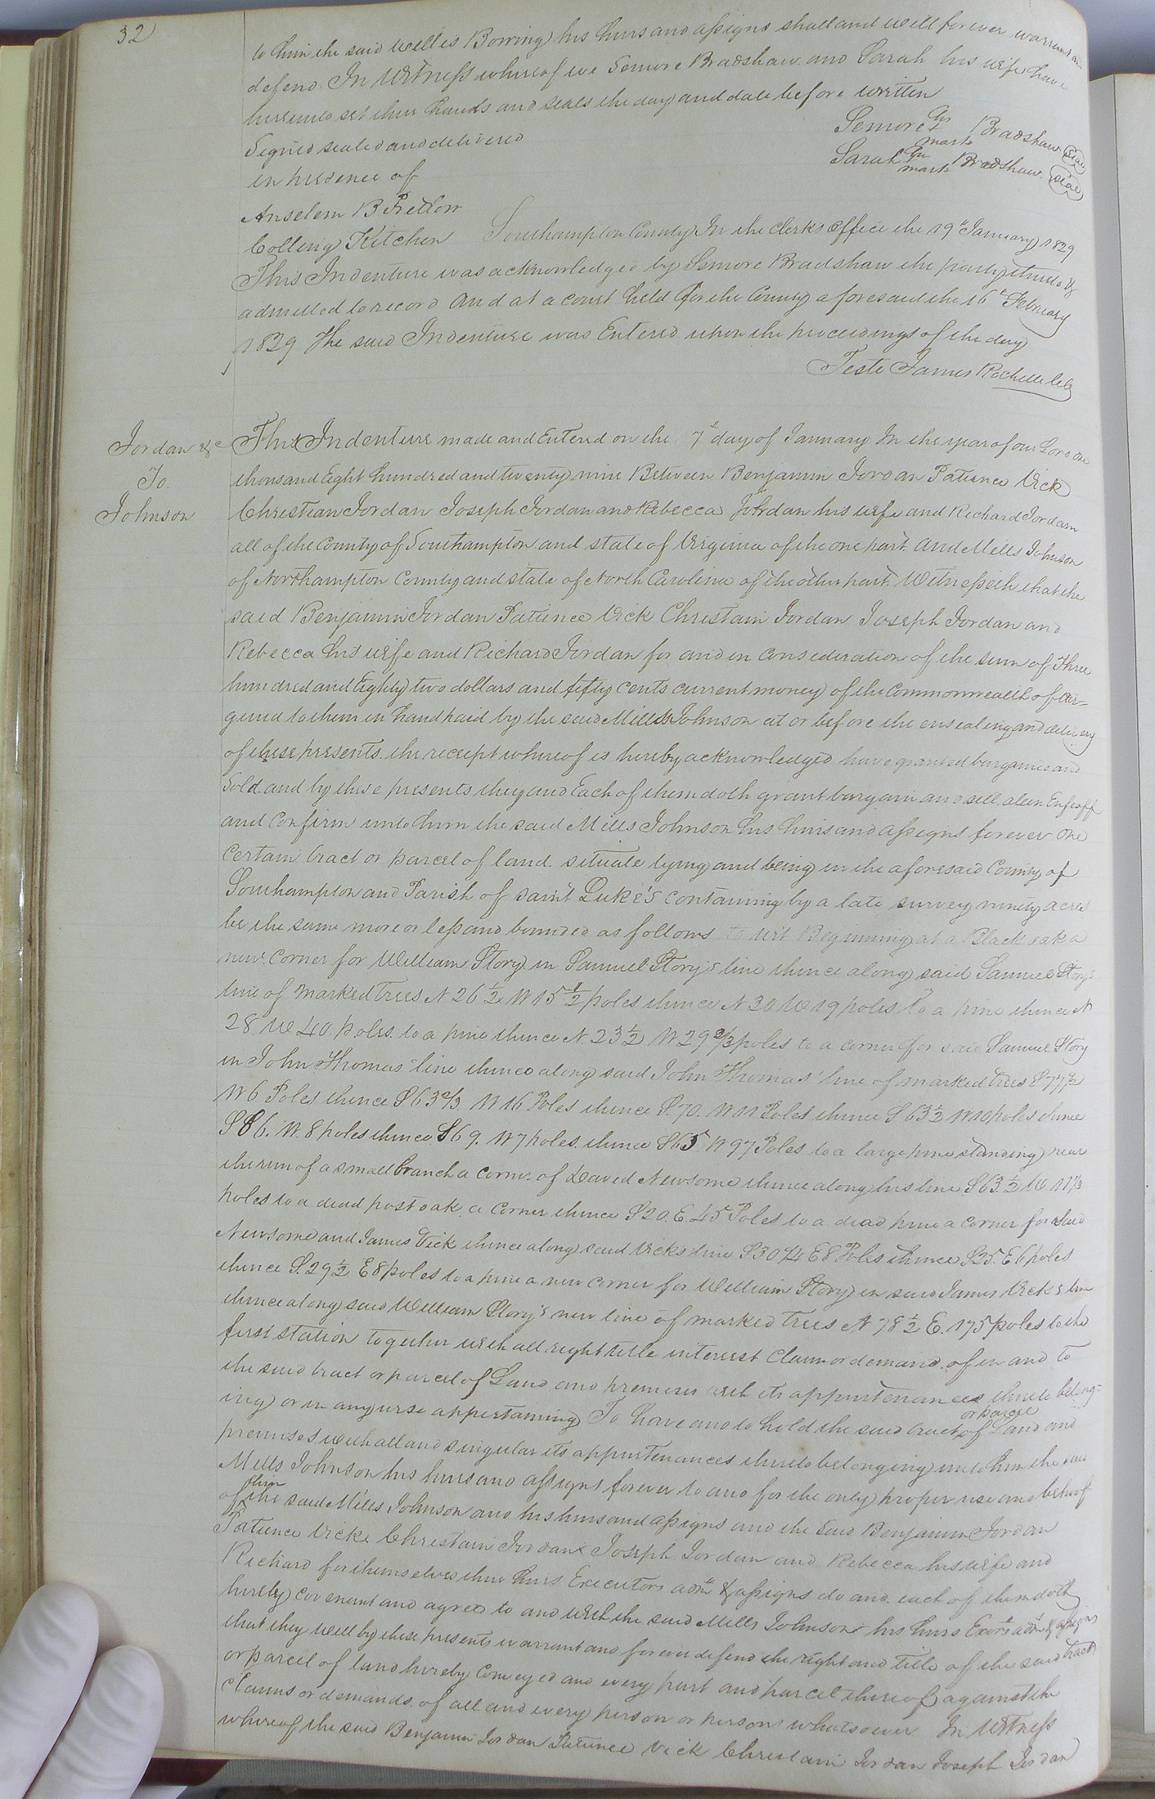 32
to him the said Willis Bowing his heirs and assigns shall and will forever warrant and
defend In Witness whereof we Semore Bradshaw and Sarah his wife have
hereunto set their hands and seals the day and date before written
Signed sealed and delivered
Semore his mark Bradshaw Seal
in presence of
Sarah her mark Bradshaw Seal
Anselem B Pretlow
Colling Kitchen Southampton County In the Clerks office the 19th January 1829
This Indenture was acknowledged by Semore Bradshaw the party thereto &
admitted to record And at a court held for the County aforesaid the 16th February
1829 The said Indenture was Entered upon the proceedings of the day
Teste James Rochelle Clk
Jordan &c
To
Johnson
This Indenture made and Entered on the 7th day of January In the year of our Lord one
thousand Eight hundred and twenty nine Between Benjamin Jordan Patience Vick
Christian Jordan Joseph Jordan and Rebecca Jordan his wife and Richard Jordan
all of the County of Southampton and state of Virginia of the one part And Mills Johnson
of Northampton County and state of North Carolina of the other part Witnesseth that the
said Benjamin Jordan Patience Vick Christain Jordan Joseph Jordan and
Rebecca his wife and Richard Jordan for and in consideration of the sum of Three
hundred and Eighty two dollars and fifty cents current money of the Commonwealth of Vir-
ginia to them in hand paid by the said Mills Johnson at or before the ensealing and delivery
of these presents the receipt whereof is hereby acknowledged have granted bargained and
Sold and by these presents they and Each of them doth grant bargain and sell alien Enfeoff
and Confirm unto him the said Mills Johnson his heirs and assigns forever One
Certain tract or parcel of land situate lying and being in the aforesaid County of
Southampton and Parish of saint Luke's containing by a late survey ninety acres
be the same more or less and bounded as follows to wit Beginning at a Black oak a
new Corner for William Story in Samuel Story's line thence along said Samuel Story's
line of marked trees N 26½ W 15½ poles thence N 30 W 19 poles to a pine thence N
28 W 40 poles to a pine thence N 23½ W 29⅔ poles to a corner for said Samuel Story
in John Thomas' line thence along said John Thomas' line of marked trees S 77½
W 6 Poles thence S 63⅔ W 16 Poles thence S 70. W 11 Poles thence S 63½ W 10 poles thence
S 86. W. 8 poles thence S 69. W 7 poles thence S 65 W 97 Poles to a large pine standing near
the run of a small branch a corner of David Newsome thence along his line S 63½ W. 11⅓
poles to a dead post oak a corner thence S 20. E. 45 Poles to a dead pine a corner for said
Newsome and James Vick thence along said Vicks line S 30¼ E 8 Poles thence S 25. E 6 poles
thence S. 29½ E 8 poles to a pine a new corner for William Story in said James Vick's line
thence along said William Story's new line of marked trees N 78½ E. 175 poles to the
first station together with all right title interest claim or demand of in and to
the said tract or parcel of Land and premises with its appurtenances thereto belong-
ing or in any wise appertaining To have and to hold the said tract or parcel of Land and
premises with all and singular its appurtenances thereto belonging unto him the said
Mills Johnson his heirs and assigns forever to and for the only proper use and behoof
of him the said Mills Johnson and his heirs and assigns and the said Benjamin Jordan
Patience Vick Christain Jordan Joseph Jordan and Rebecca his wife and
Richard for themselves their heirs Executors admrs & assigns do and each of them doth
hereby covenant and agree to and with the said Mills Johnson his heirs Exors adms & assigns
that they will by these presents warrant and forever defend the right and title of the said tract
or parcel of land hereby Conveyed and every part and parcel thereof against the
Claims or demands of all and every person or persons whatsoever In Witness
whereof the said Benjamin Jordan Patience Vick Christain Jordan Joseph Jordan